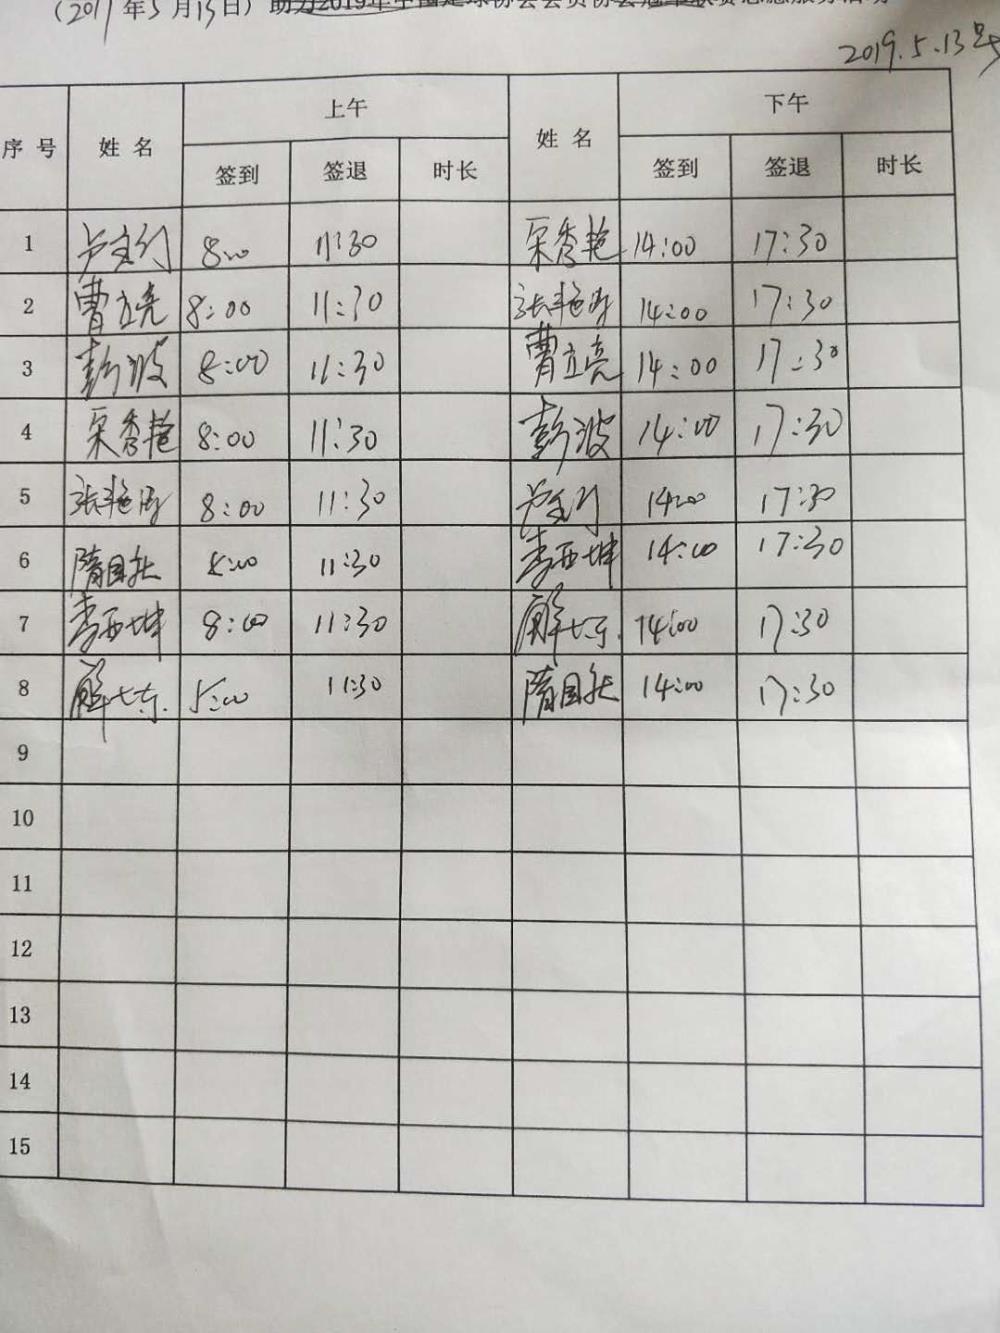 (2019年5月13日) 助力2019年中国足球协会会员协会冠军联赛志愿服务活动
2019.5.13号
序号 姓名 上午 姓名 下午
签到 签退 时长 签到 签退 时长
1 8:00 11:30 宋秀艳 14:00 17:30
2 曹立亮 8:00 11:30 张艳 14:00 17:30
3 彭波 8:00 11:30 曹立亮 14:00 17:30
4 宋秀艳 8:00 11:30 彭波 14:00 17:30
5 张艳 8:00 11:30 14:00 17:30
6 隋国 8:00 11:30 李西坤 14:00 17:30
7 李西坤 8:00 11:30 解 14:00 17:30
8 解 8:00 11:30 隋国 14:00 17:30
9
10
11
12
13
14
15